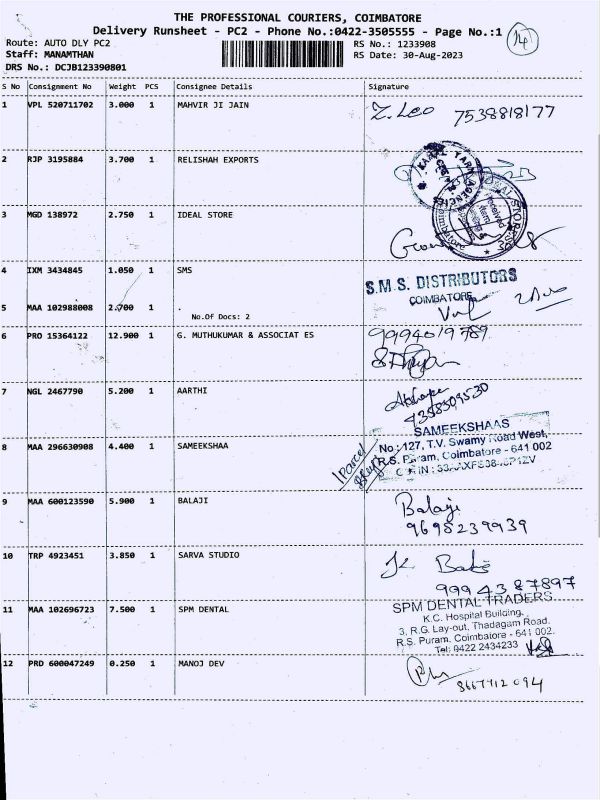 THE PROFESSIONAL COURIERS, COIMBATORE
Delivery Runsheet - PC2 - Phone No.:0422-3505555 - Page No.:1
14
Route: AUTO DLY PC2
RS No.: 1233908
Staff: MANAMTHAN
RS Date: 30-Aug-2023
DRS No.: DCJB123390801
S No Consignment No Weight PCS Consignee Details Signature
1 VPL 520711702 3.000 1 MAHVIR JI JAIN
Z. Leo 7538818177
2 RJP 3195884 3.700 1 RELISHAH EXPORTS
3 MGD 138972 2.750 1 IDEAL STORE
4 IXM 3434845 1.050 1 SMS
S.M.S. DISTRIBUTORS
COIMBATORE
5 MAA 102988008 2.700 1 .
No.Of Docs: 2
6 PRO 15364122 12.900 1 G. MUTHUKUMAR & ASSOCIAT ES
9994019789
7 NGL 2467790 5.200 1 AARTHI
4358509530
SAMEEKSHAAS
8 MAA 296630908 4.400 1 SAMEEKSHAA
No : 127, T.V. Swamy Road West,
R.S. Puram, Coimbatore - 641 002
9 MAA 600123590 5.900 1 BALAJI
Balaji
9695239939
10 TRP 4923451 3.850 1 SARVA STUDIO
9994387897
11 MAA 102696723 7.500 1 SPM DENTAL
SPM DENTAL TRADERS
K.C. Hospital Building,
3, R.G. Lay-out, Thadagam Road.
R.S. Puram. Coimbatore - 641 002.
Tel: 0422 2434233
12 PRD 600047249 0.250 1 MANOJ DEV
8667712094